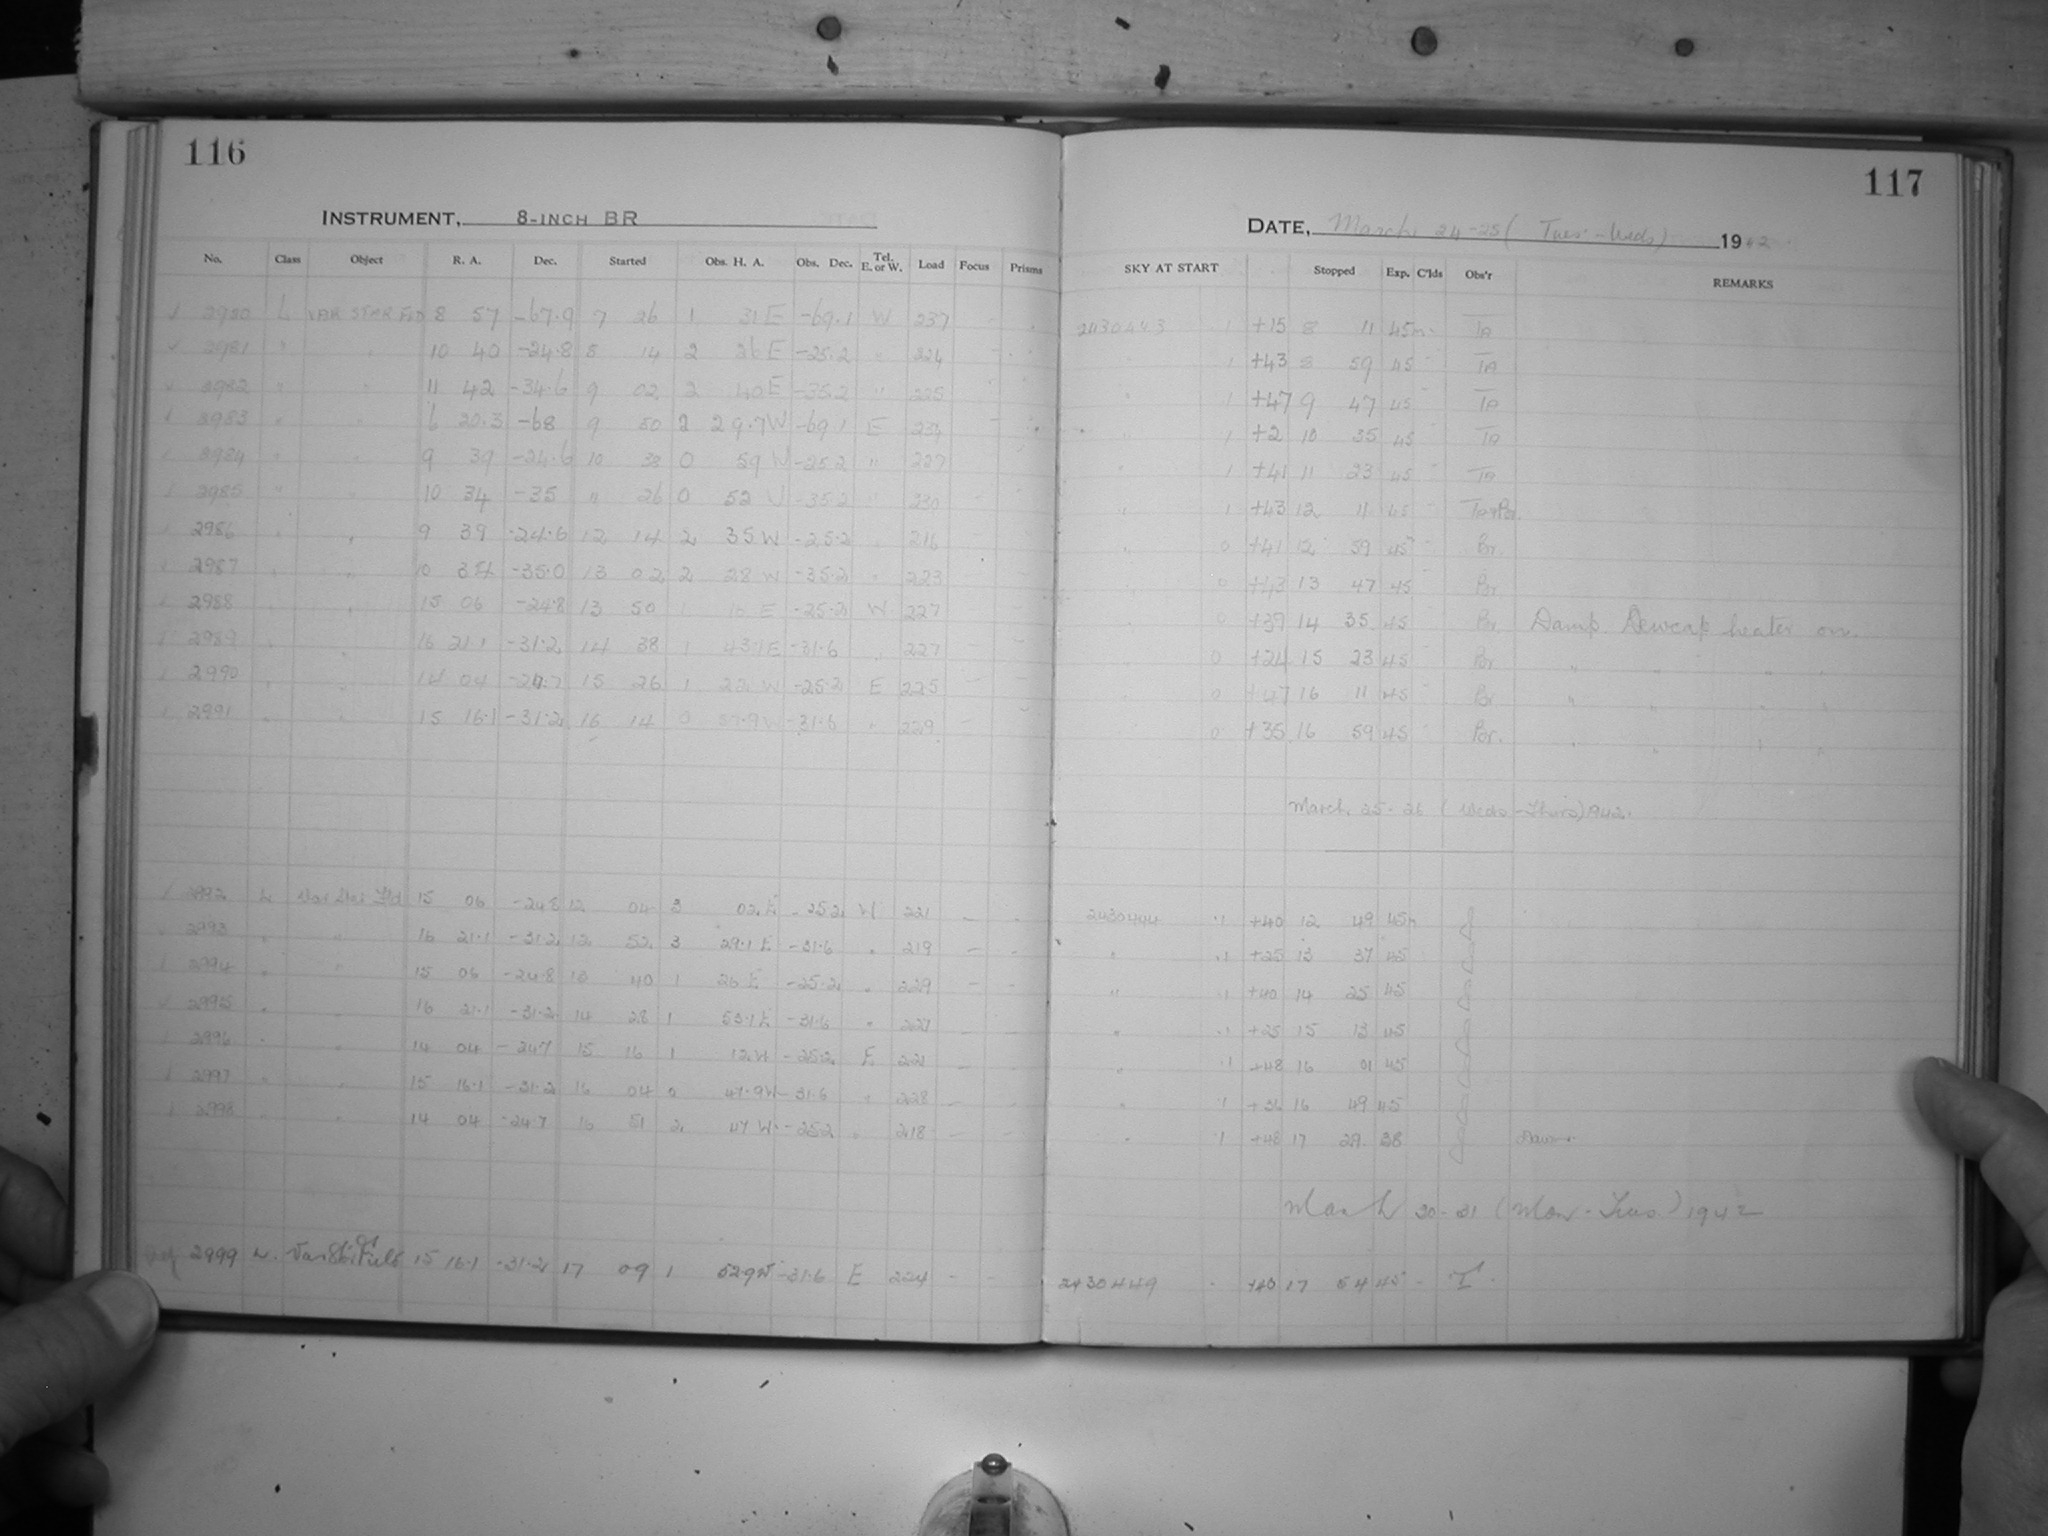 116
117
INSTRUMENT, 8-INCH BR
DATE, March 24-25 (Tues-Weds) 1942
No. Class Object R. A. Dec. Started Obs. H. A. Obs. Dec. Tel. E. or W. Load Focus Prisms SKY AT START Stopped Exp. C'lds Obs'r REMARKS
2980 L VAR STAR FLD 8 57 -67.9 7 26 1 31 E -69.1 W 237 2430443 1 +15 8 11 45m TA
2981 " " 10 40 -24.8 8 14 2 26 E -25.2 " 224 " 1 +43 8 59 45 TA
2982 " " 11 42 -34.6 9 02 2 40 E -35.2 " 225 " 1 +47 9 47 45 TA
2983 " " 6 20.3 -68 9 50 2 29.7 W -69.1 E 234 " 1 +2 10 35 45 TA
2984 " " 9 39 -24.6 10 38 0 59 W -25.2 " 227 " 1 +41 11 23 45 TA
2985 " " 10 34 -35 11 26 0 52 W -35.2 " 230 " 1 +43 12 11 45
2986 " " 9 39 -24.6 12 14 2 35 W -25.2 " 216 " 0 +41 12 59 45 Br.
2987 " " 10 34 -35.0 13 02 2 28 W -35.2 " 223 " 0 +43 13 47 45 Br.
2988 " " 15 06 -24.8 13 50 1 16 E -25.2 W 227 " 0 +39 14 35 45 Br. Damp. Dewcap heater on.
2989 " " 16 21.1 -31.2 14 38 1 43.1 E -31.6 " 227 " 0 +24 15 23 45 Br " " " "
2990 " " 14 04 -24.7 15 26 1 22 W -25.2 E 225 " 0 +47 16 11 45 Br " " " "
2991 " " 15 16.1 -31.2 16 14 0 57.9 W -31.6 " 229 0 +35 16 59 45 Br. " " " "
March 25-26 (Weds-Thurs) 1942.
2992 L Var Star Fld 15 06 -24.8 12 04 3 02 E -25.2 W 221 - - 2430444 .1 +40 12 49 45m
2993 " " 16 21.1 -31.2 12 52 3 29.1 E -31.6 " 219 - - " .1 +25 13 37 45
2994 " " 15 06 -24.8 13 40 1 26 E -25.2 " 229 - - " .1 +40 14 25 45
2995 " " 16 21.1 -31.2 14 28 1 53.1 E -31.6 " 227 - - " .1 +25 15 13 45
2996 " " 14 04 -24.7 15 16 1 12 W -25.2 E 221 - - " .1 +48 16 01 45
2997 " " 15 16.1 -31.2 16 04 0 47.9 W -31.6 " 228 - - " .1 +36 16 49 45
2998 " " 14 04 -24.7 16 51 2 47 W -25.2 " 218 - - " .1 +48 17 29 38 Dawn.
March 30-31 (Mon-Tues.) 1942
2999 L. Var Star Field 15 16.1 -31.2 17 09 1 52.9 W -31.6 E 224 - - 2430449 . +40 17 54 45 - T.